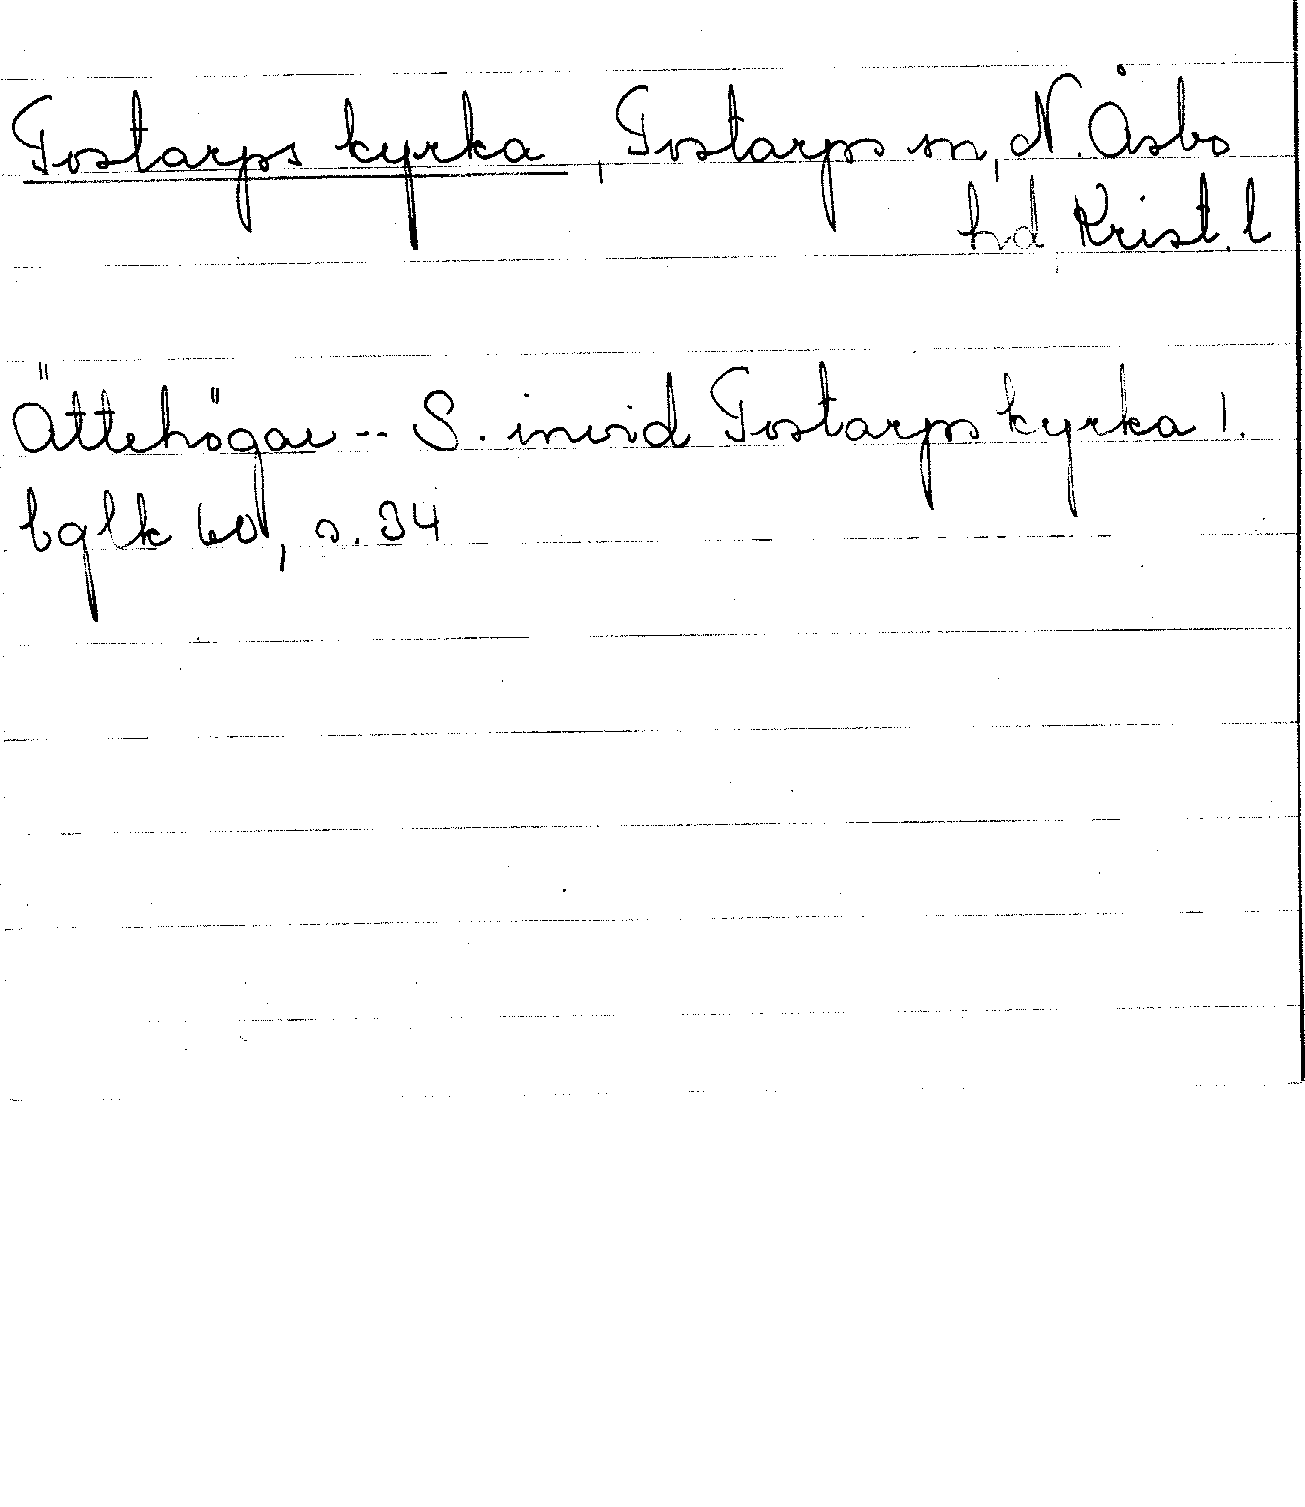 Tostarps kyrka, Tostarps sn, N. Åsbo
hd Krist. l
Ättehögar -- S. invid Tostarps kyrka 1.
bglk 60, s. 34